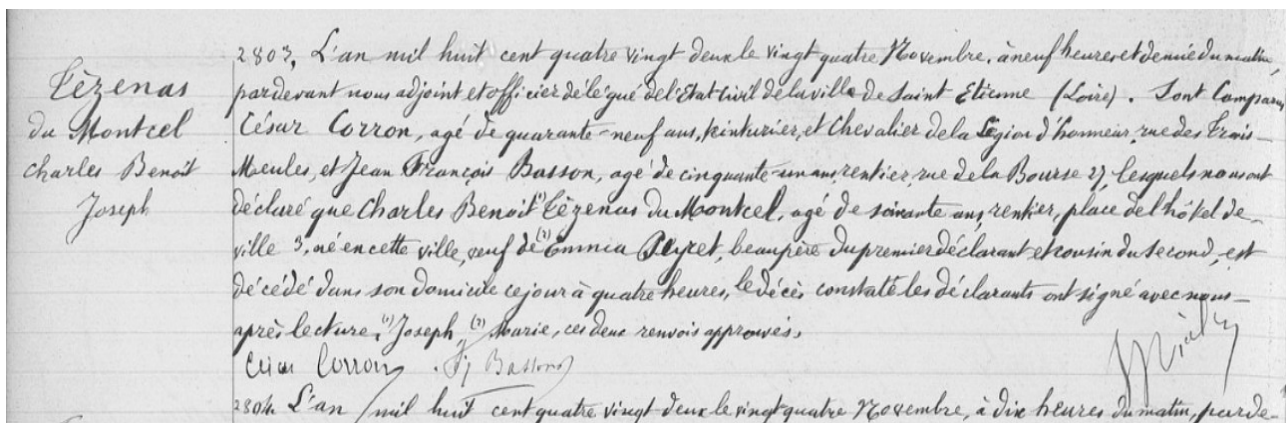 Tèzenas
du Montcel
Charles Benoît
Joseph
2803, L'an mil huit cent quatre vingt deux le vingt quatre Novembre, à neuf heures et demie du matin,
pardevant nous adjoint et officier délégué de l'Etat civil de la ville de Saint Etienne (Loire). Sont Comparu,
César Corron, agé de quarante-neuf ans, teinturier, et Chevalier de la Légion d'honneur, rue des Trois-
Meules, et Jean François Basson, agé de cinquante-un ans, rentier, rue de la Bourse 27, lesquels nous ont
déclaré que Charles Benoit (1) Tèzenas du Montcel, agé de soixante ans, rentier, place de l'hôtel de-
ville 3, né en cette ville, veuf de (2) Emma Peyret, beau père du premier déclarant et cousin du second, est
décédé dans son domicile ce jour à quatre heures, le décès constaté les déclarants ont signé avec nous-
après lecture. (1) Joseph, (2) Marie, ces deux renvois approuvés.
César Corron J Basson
2804 L'an mil huit cent quatre vingt deux le vingt quatre Novembre, à dix heures du matin, parde-